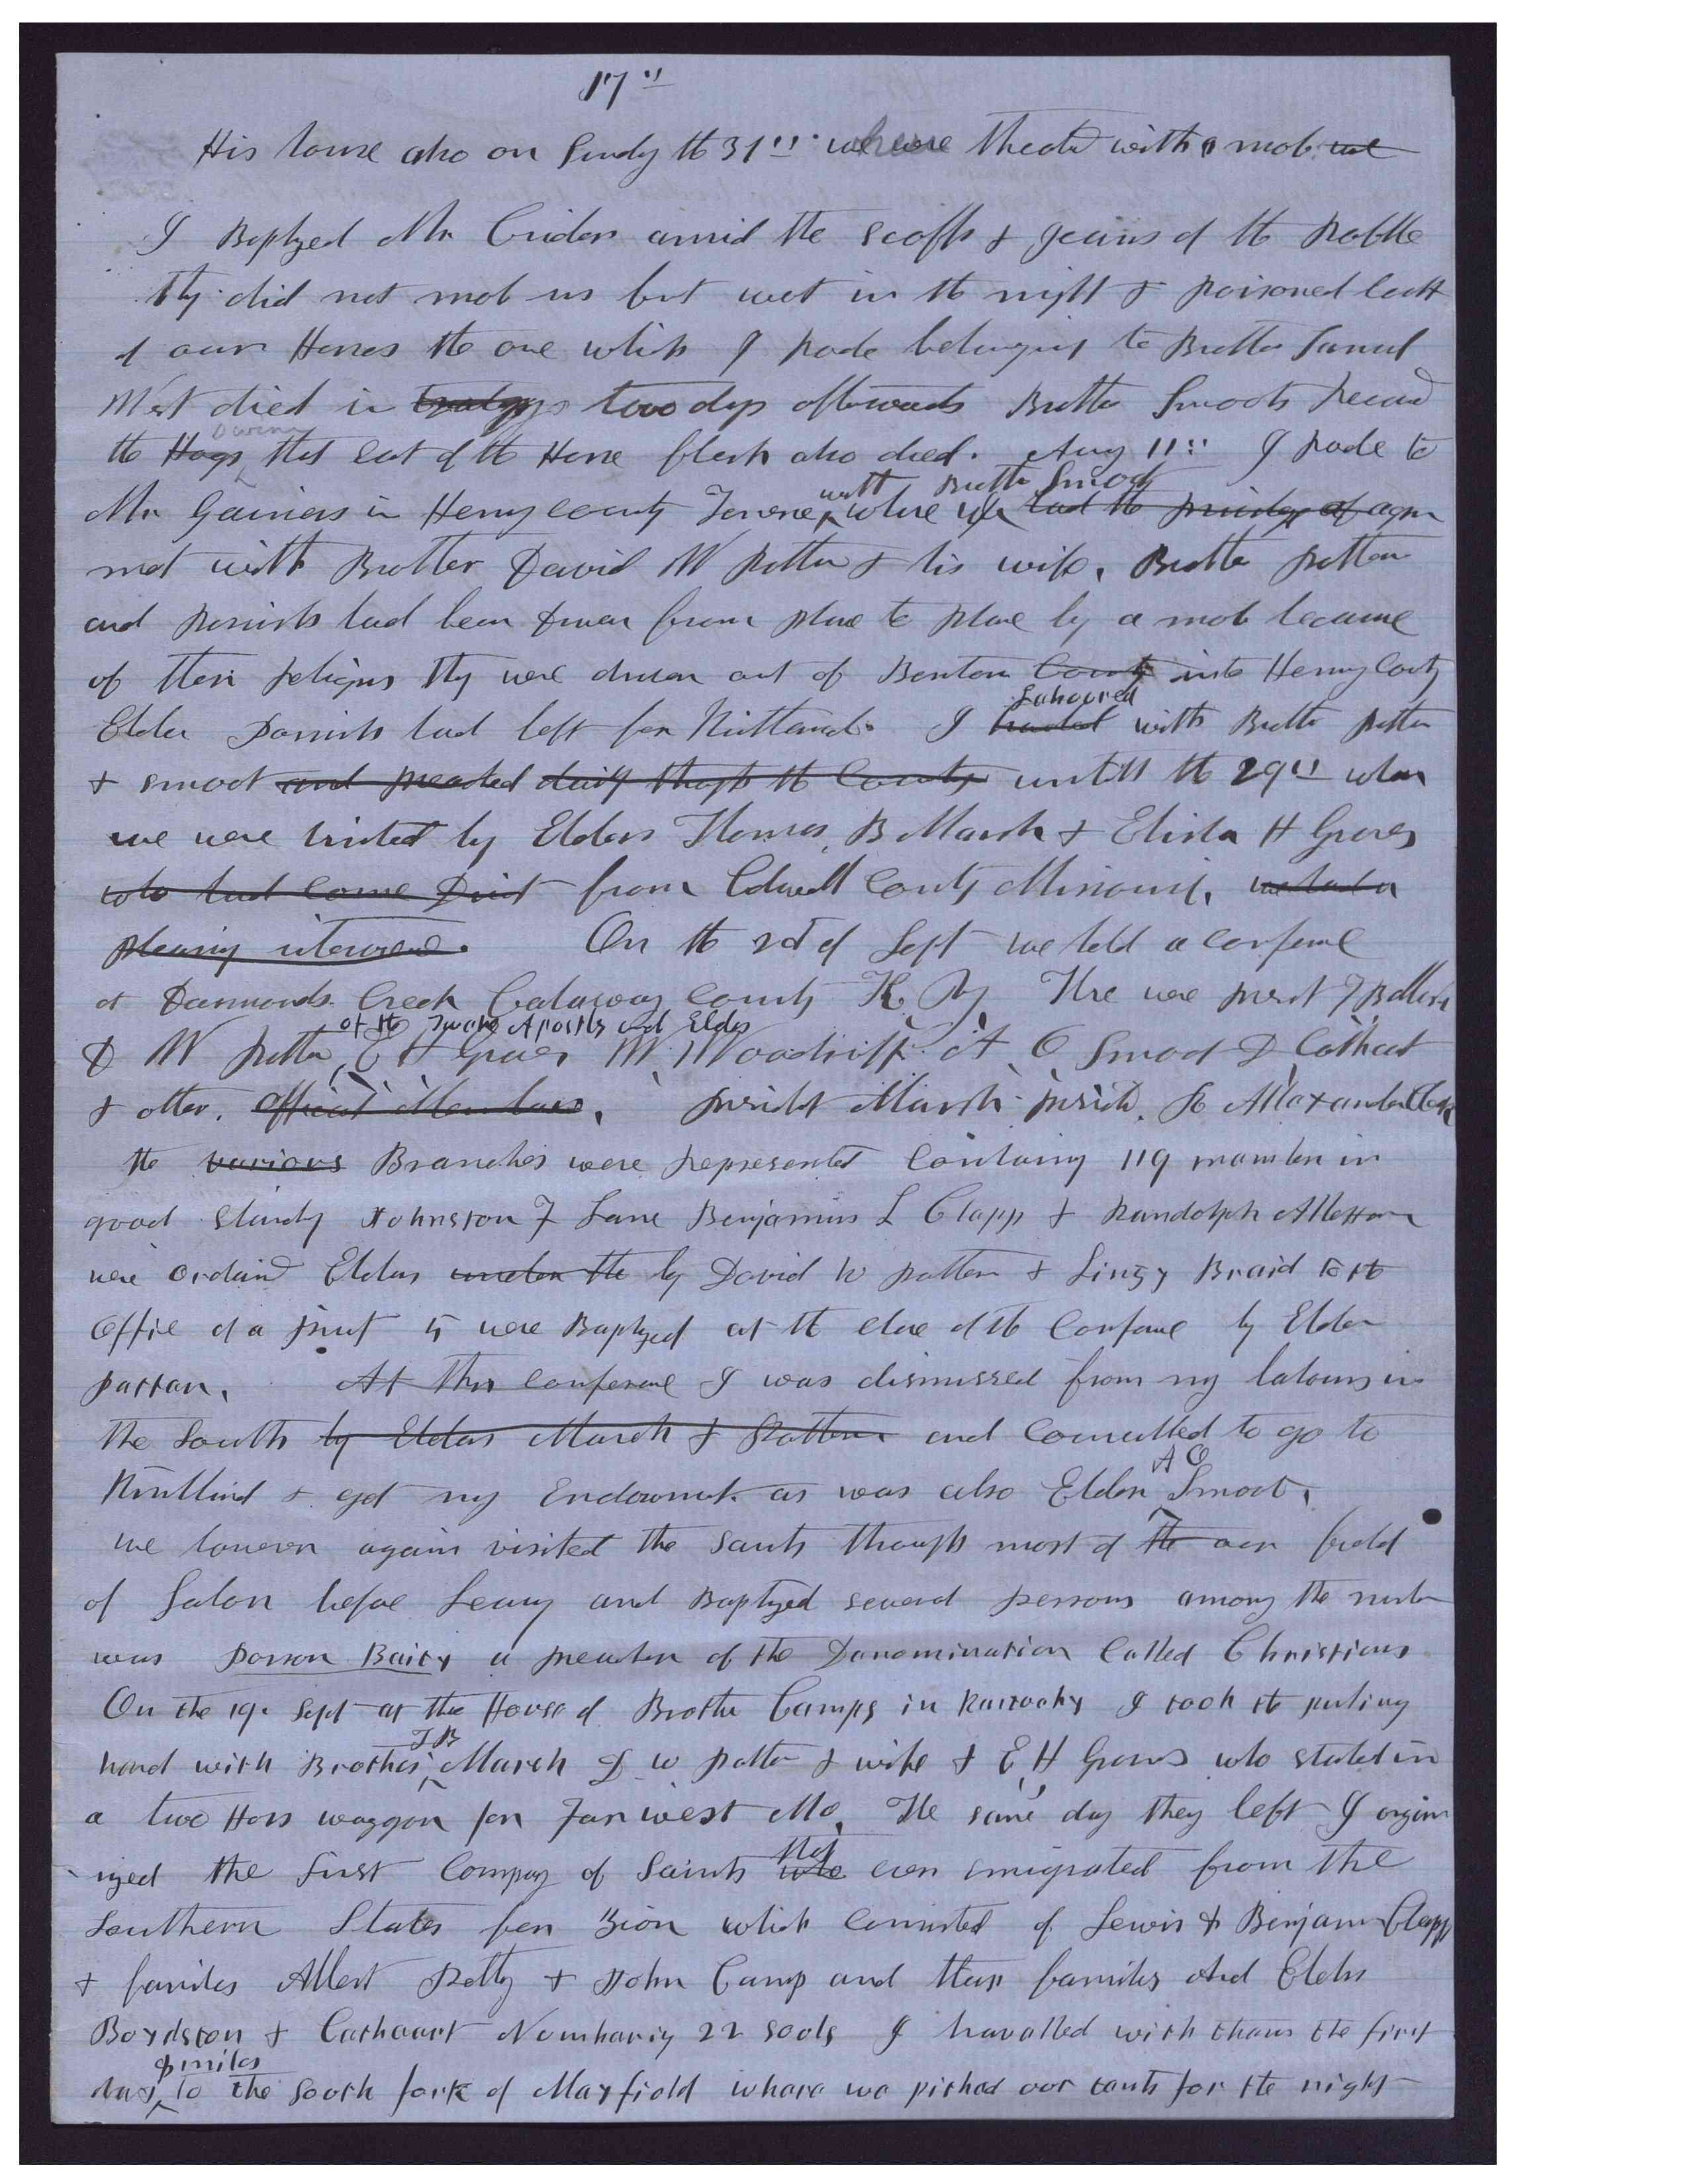 17"
His house also on Sundy the 31" we were Threatd with a mob we
I Baptzed Mr Crider amid the scoffs & geeirs of the rabble
they did not mob us but wet in the night & poisoned
of our Horses the one which I rode belonging to Brother Samuel
West died in two days afterwards Brother Smoots recvd
the Hogs that eat of the Horse flesh also died. Aug 11": I rode to
with Brother Smoot
Mr Gainers in Henry County where we had the privilege of again
met with Brother David W Patten & his wife, Brother patten
and parrish had been driven from place to place by a mob because
of their religius they were driven out of Benton County into Henry County
Laboured
Elder Parrish had left for Kirtland. I with Brother patten
& smoot and preached daily through the County untill the 29" when
we were visited by Elders Thomas B Marsh & Elisha H Groves
who had come Direct from Coldwell County Missouri, we had a
pleasing interview. On the 2d of Sept we held a conference
at Damonds Creek Calaway County K. Ty. There were present T B Marsh
of the Twelve Apostls and Elders
D W Patten, E H Groves W. Woodruff A O Smoot D Cathcart
& other. official Members. presidet Marsh presid. Alexander Clerk
the various Branches were represented Containing 119 members in
good standing Johnston F Lane Benjamin L Clapp & Randolph Allexander
were ordaind Elders under the by David W patten & Linzy Braid to the
office of a priest 5 were Baptized at the close of the Conference by Elder
pattan. At this conference I was dismissed from my labours in
the South by Elders Marsh & Patten and Councilled to go to
A O
Kirtland & get my Endowment as was also Elder Smoot,
we however again visited the Saints through most of the our field
of Labor before Leaving and Baptized several persons among the number
was Parson Bairy a preacher of the Danomination Called Christians
On the 19. Sept at the House of Brother Camps in Kantocky I took the parting
T B
hand with Brother Marsh D W patten & wife & E H Groves who started in
a two Hors waggon for Farwest Mo. The same day they left I organ
that
ized the first Company of Saints who ever emigrated from the
Southern States for Zion which consisted of Lewis & Benjamin Clapp
& families Albert Petty & John Camp and their families And Elders
Boydston & Cathcart Numbering 22 Sools I travalled with tham the first
miles
day to the South fork of Mayfield whare we pitched our tants for the night